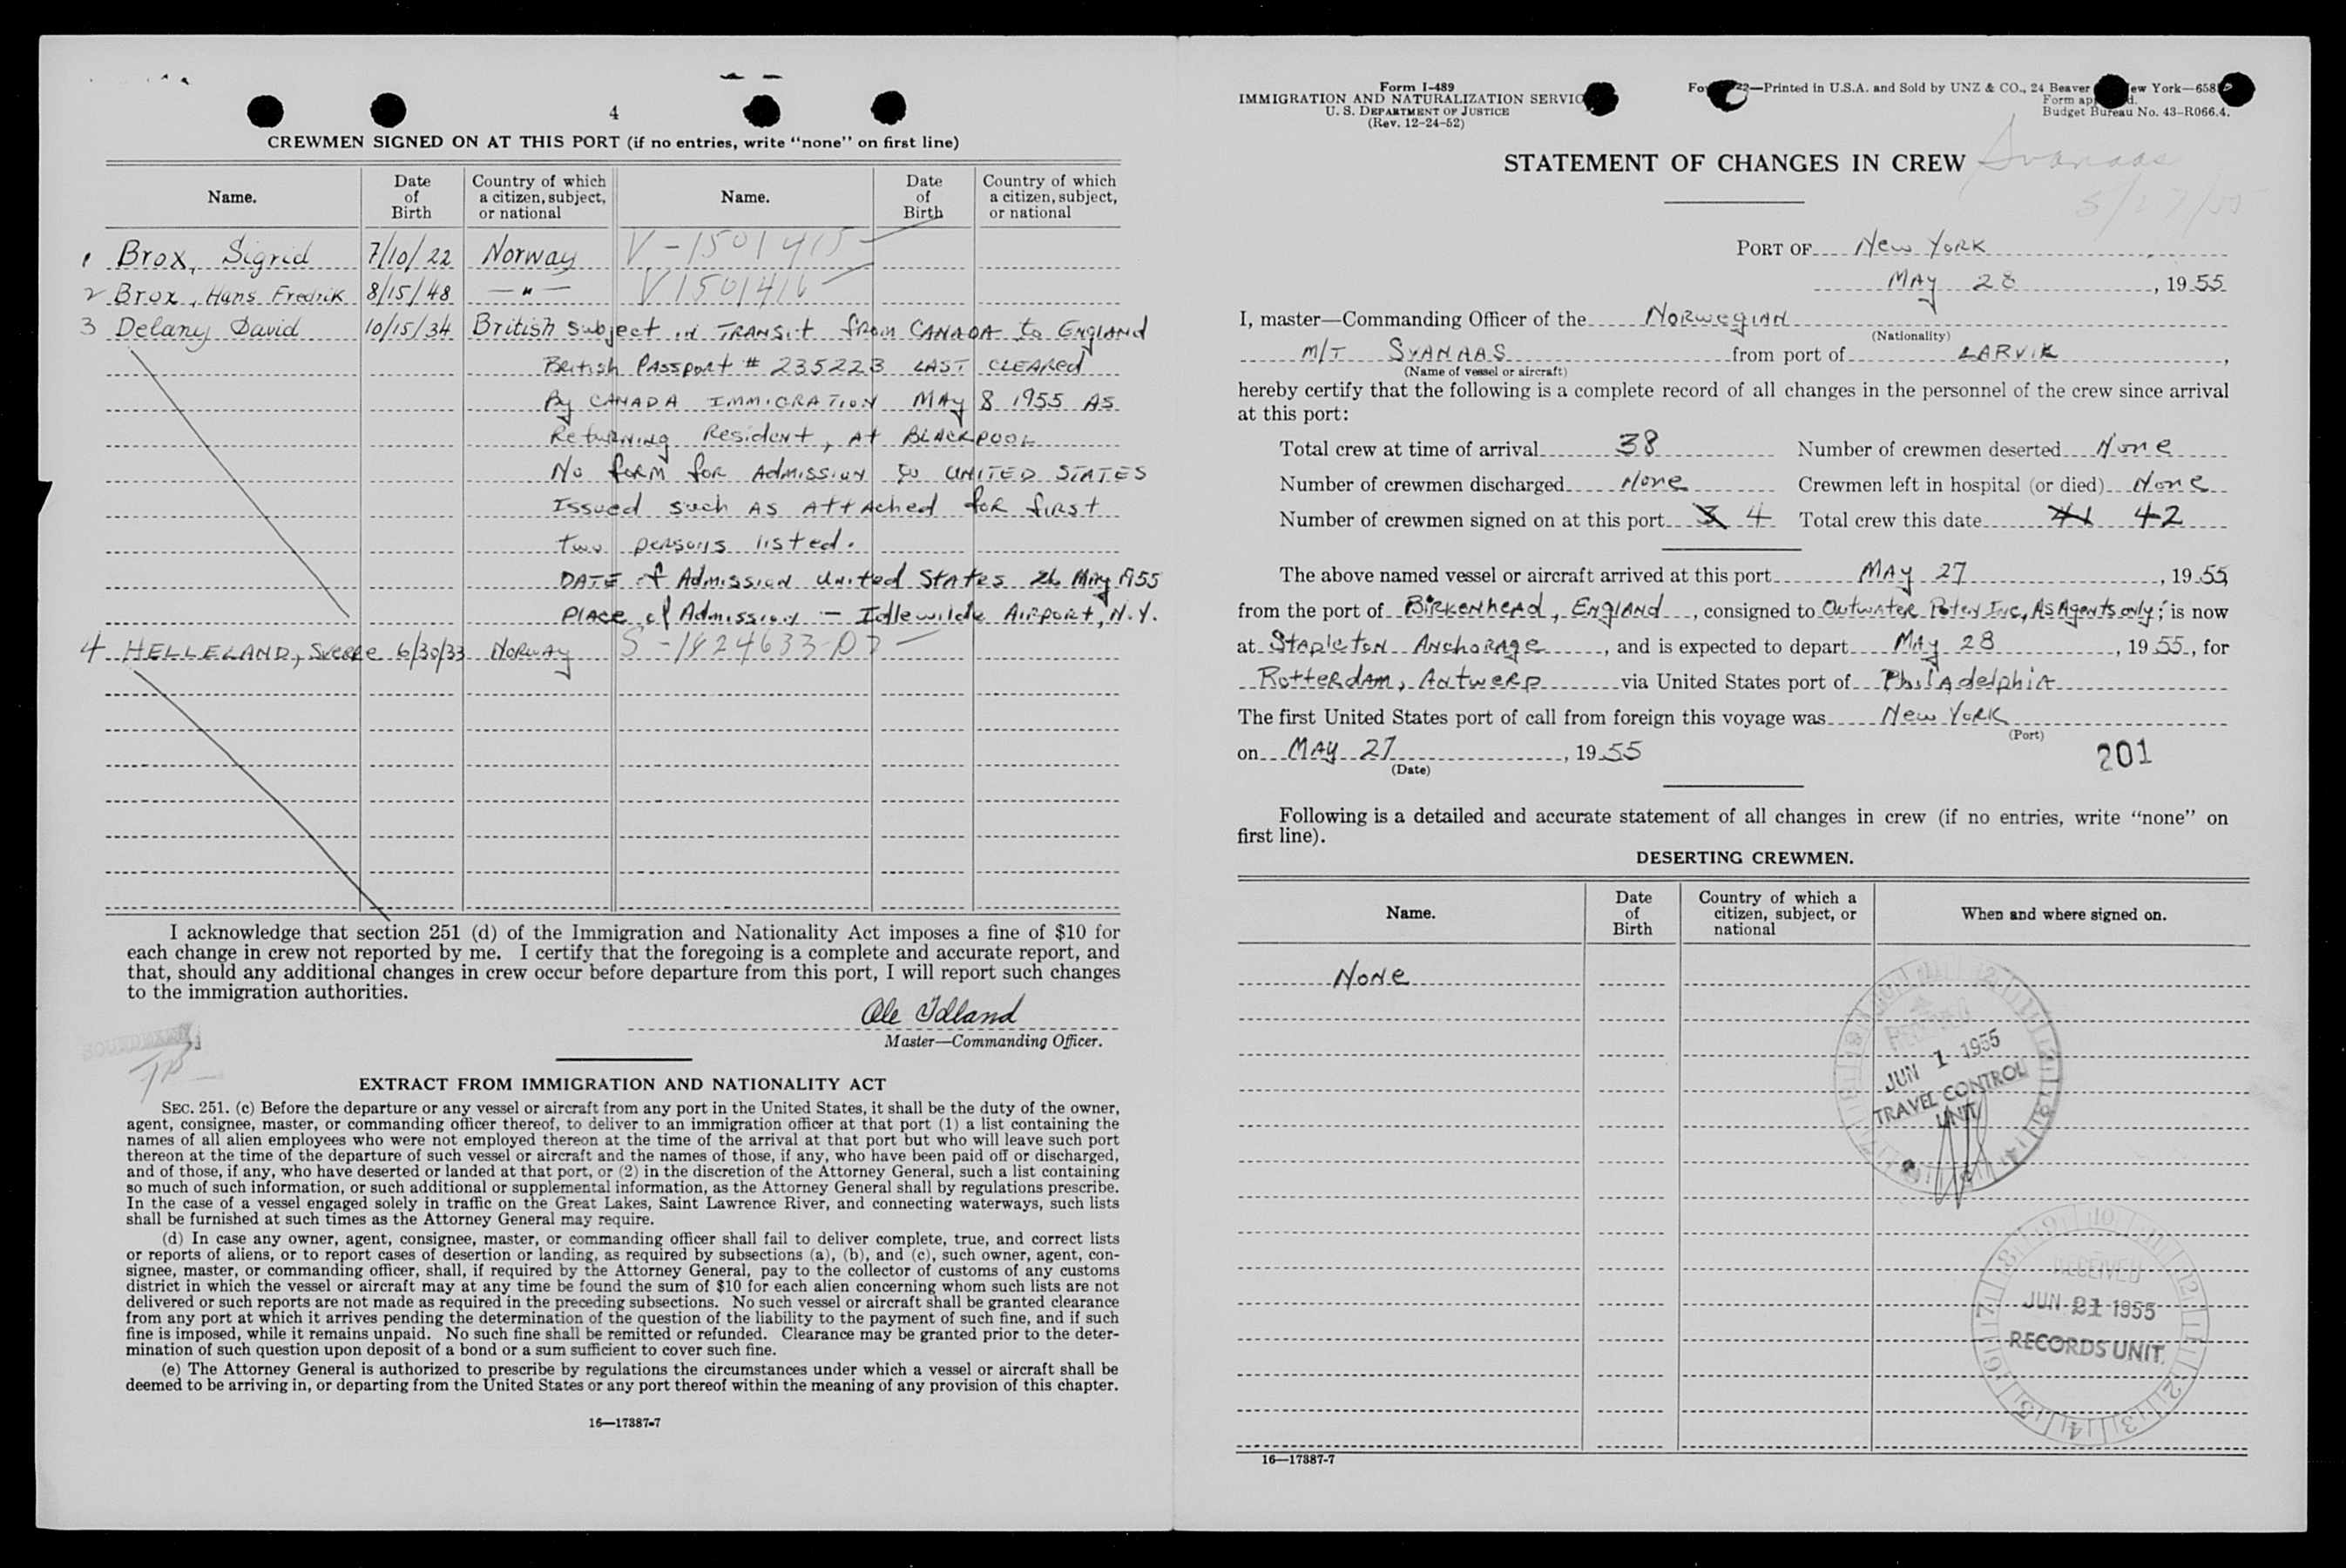 4
CREWMEN SIGNED ON AT THIS PORT (if no entries, write “none” on first line)
Name. Date of Birth Country of which a citizen, subject, or national Name. Date of Birth Country of which a citizen, subject, or national
1 Brox, Sigrid 7/10/22 Norway V-1501415
2 Brox, Hans Fredrik 8/15/48 —"— V1501416
3 Delany David 10/15/34 British subject in TRANSIT from CANADA to ENGLAND
British Passport # 235223 LAST CLEARED
By CANADA IMMIGRATION MAY 8 1955 AS
Returning Resident, At BLACKPOOL
No form for Admission to UNITED STATES
Issued such as attached for first
two persons listed.
DATE of Admission United States 26 May 1955
Place of Admission — Idlewilde Airport, N.Y.
4 HELLELAND, Sverre 6/30/33 Norway S-1824633-D7
I acknowledge that section 251 (d) of the Immigration and Nationality Act imposes a fine of $10 for
each change in crew not reported by me. I certify that the foregoing is a complete and accurate report, and
that, should any additional changes in crew occur before departure from this port, I will report such changes
to the immigration authorities.
Ole Idland
Master—Commanding Officer.
EXTRACT FROM IMMIGRATION AND NATIONALITY ACT
SEC. 251. (c) Before the departure or any vessel or aircraft from any port in the United States, it shall be the duty of the owner,
agent, consignee, master, or commanding officer thereof, to deliver to an immigration officer at that port (1) a list containing the
names of all alien employees who were not employed thereon at the time of the arrival at that port but who will leave such port
thereon at the time of the departure of such vessel or aircraft and the names of those, if any, who have been paid off or discharged,
and of those, if any, who have deserted or landed at that port, or (2) in the discretion of the Attorney General, such a list containing
so much of such information, or such additional or supplemental information, as the Attorney General shall by regulations prescribe.
In the case of a vessel engaged solely in traffic on the Great Lakes, Saint Lawrence River, and connecting waterways, such lists
shall be furnished at such times as the Attorney General may require.
(d) In case any owner, agent, consignee, master, or commanding officer shall fail to deliver complete, true, and correct lists
or reports of aliens, or to report cases of desertion or landing, as required by subsections (a), (b), and (c), such owner, agent, con-
signee, master, or commanding officer, shall, if required by the Attorney General, pay to the collector of customs of any customs
district in which the vessel or aircraft may at any time be found the sum of $10 for each alien concerning whom such lists are not
delivered or such reports are not made as required in the preceding subsections. No such vessel or aircraft shall be granted clearance
from any port at which it arrives pending the determination of the question of the liability to the payment of such fine, and if such
fine is imposed, while it remains unpaid. No such fine shall be remitted or refunded. Clearance may be granted prior to the deter-
mination of such question upon deposit of a bond or a sum sufficient to cover such fine.
(e) The Attorney General is authorized to prescribe by regulations the circumstances under which a vessel or aircraft shall be
deemed to be arriving in, or departing from the United States or any port thereof within the meaning of any provision of this chapter.
16—17387-7
Form I-489
IMMIGRATION AND NATURALIZATION SERVIC
U. S. DEPARTMENT OF JUSTICE
(Rev. 12-24-52)
—Printed in U.S.A. and Sold by UNZ & CO., 24 Beaver ew York—658
Form ap d.
Budget Bureau No. 43-R066.4.
STATEMENT OF CHANGES IN CREW Svanaas
5/27/55
PORT OF New York
MAY 28, 1955
I, master—Commanding Officer of the NORWEGIAN
(Nationality)
M/T SVANAAS from port of LARVIK,
(Name of vessel or aircraft)
hereby certify that the following is a complete record of all changes in the personnel of the crew since arrival
at this port:
Total crew at time of arrival 38 Number of crewmen deserted None
Number of crewmen discharged None Crewmen left in hospital (or died) None
Number of crewmen signed on at this port 3 4 Total crew this date 41 42
The above named vessel or aircraft arrived at this port MAY 27, 1955
from the port of Birkenhead, England, consigned to Outwater Inc, As Agents only; is now
at Stapleton Anchorage, and is expected to depart MAY 28, 1955, for
Rotterdam, Antwerp via United States port of Philadelphia
The first United States port of call from foreign this voyage was New York
(Port)
on MAY 27, 1955
(Date)
201
Following is a detailed and accurate statement of all changes in crew (if no entries, write “none” on
first line).
DESERTING CREWMEN.
Name. Date of Birth Country of which a citizen, subject, or national When and where signed on.
None
JUN 1 1955
TRAVEL CONTROL
UNIT
RECEIVED
JUN 21 1955
RECORDS UNIT
16—17387-7